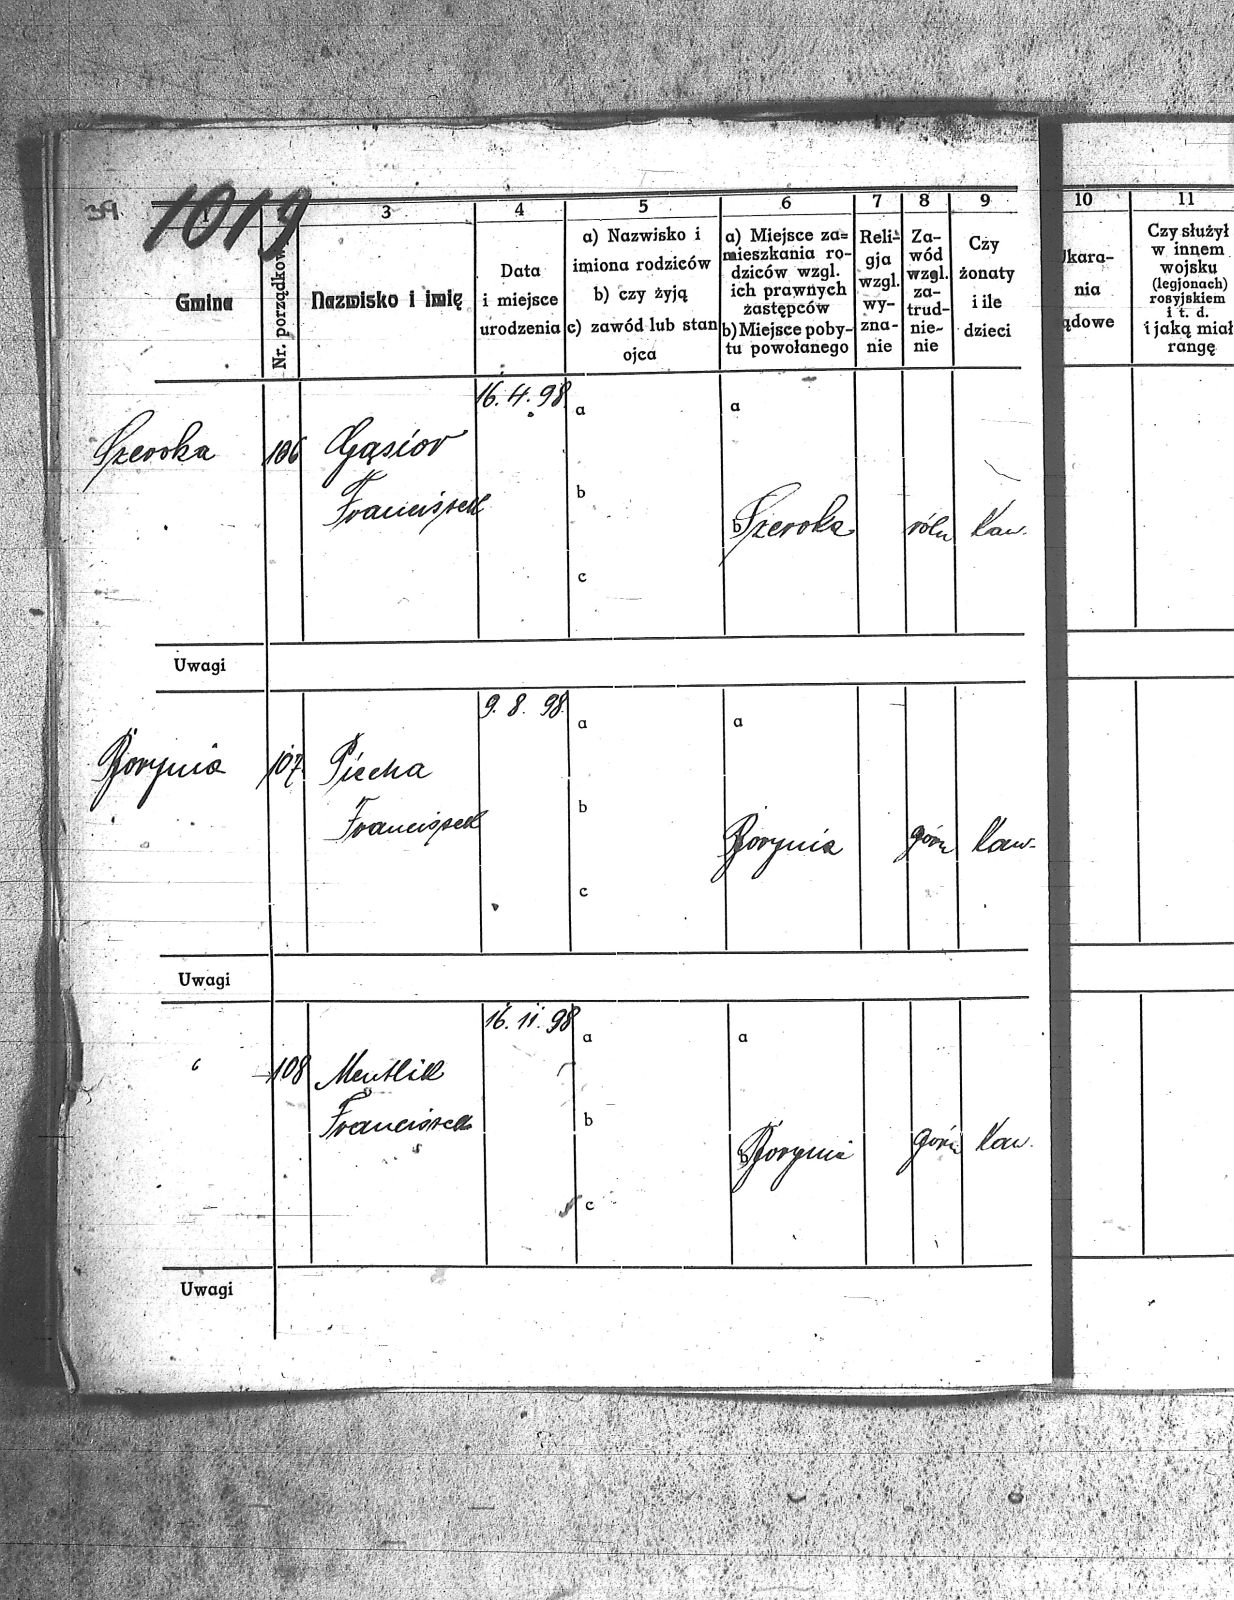 1019
1
3
4
5
6
7
8
9
10
11
Gmina
Nr. porządkow
Nazwisko i imię
Data
i miejsce
urodzenia
a) Nazwisko i
imiona rodziców
b) czy żyją
c) zawód lub stan
ojca
a) Miejsce za=
mieszkania ro-
dziców wzgl.
ich prawnych
zastępców
b) Miejsce poby-
tu powołanego
Reli-
gja
wzgl.
wy-
zna-
nie
Za-
wód
wzgl.
za-
trud-
nie-
nie
Czy
żonaty
i ile
dzieci
kara-
nia
ądowe
Czy służył
w innem
wojsku
(legjonach)
rosyjskiem
i t. d.
i jaką miał
rangę
16. 4. 98
a
a
Szeroka
106
Gąsior
Franciszek
b
b Szeroka
róln
Kaw.
c
Uwagi
9. 8. 98.
a
a
Borynia
107
Piecha
Franciszek
b
Borynia
górn
Kaw.
c
Uwagi
16. 11. 98
a
a
108
Mentlik
Franciszek
b
b Borynia
górn
Kaw.
c
Uwagi